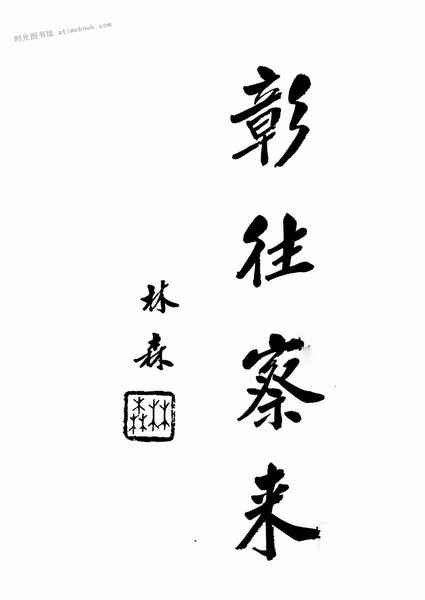 时光图书馆 atimebook.com
彰往察来
林森
林森